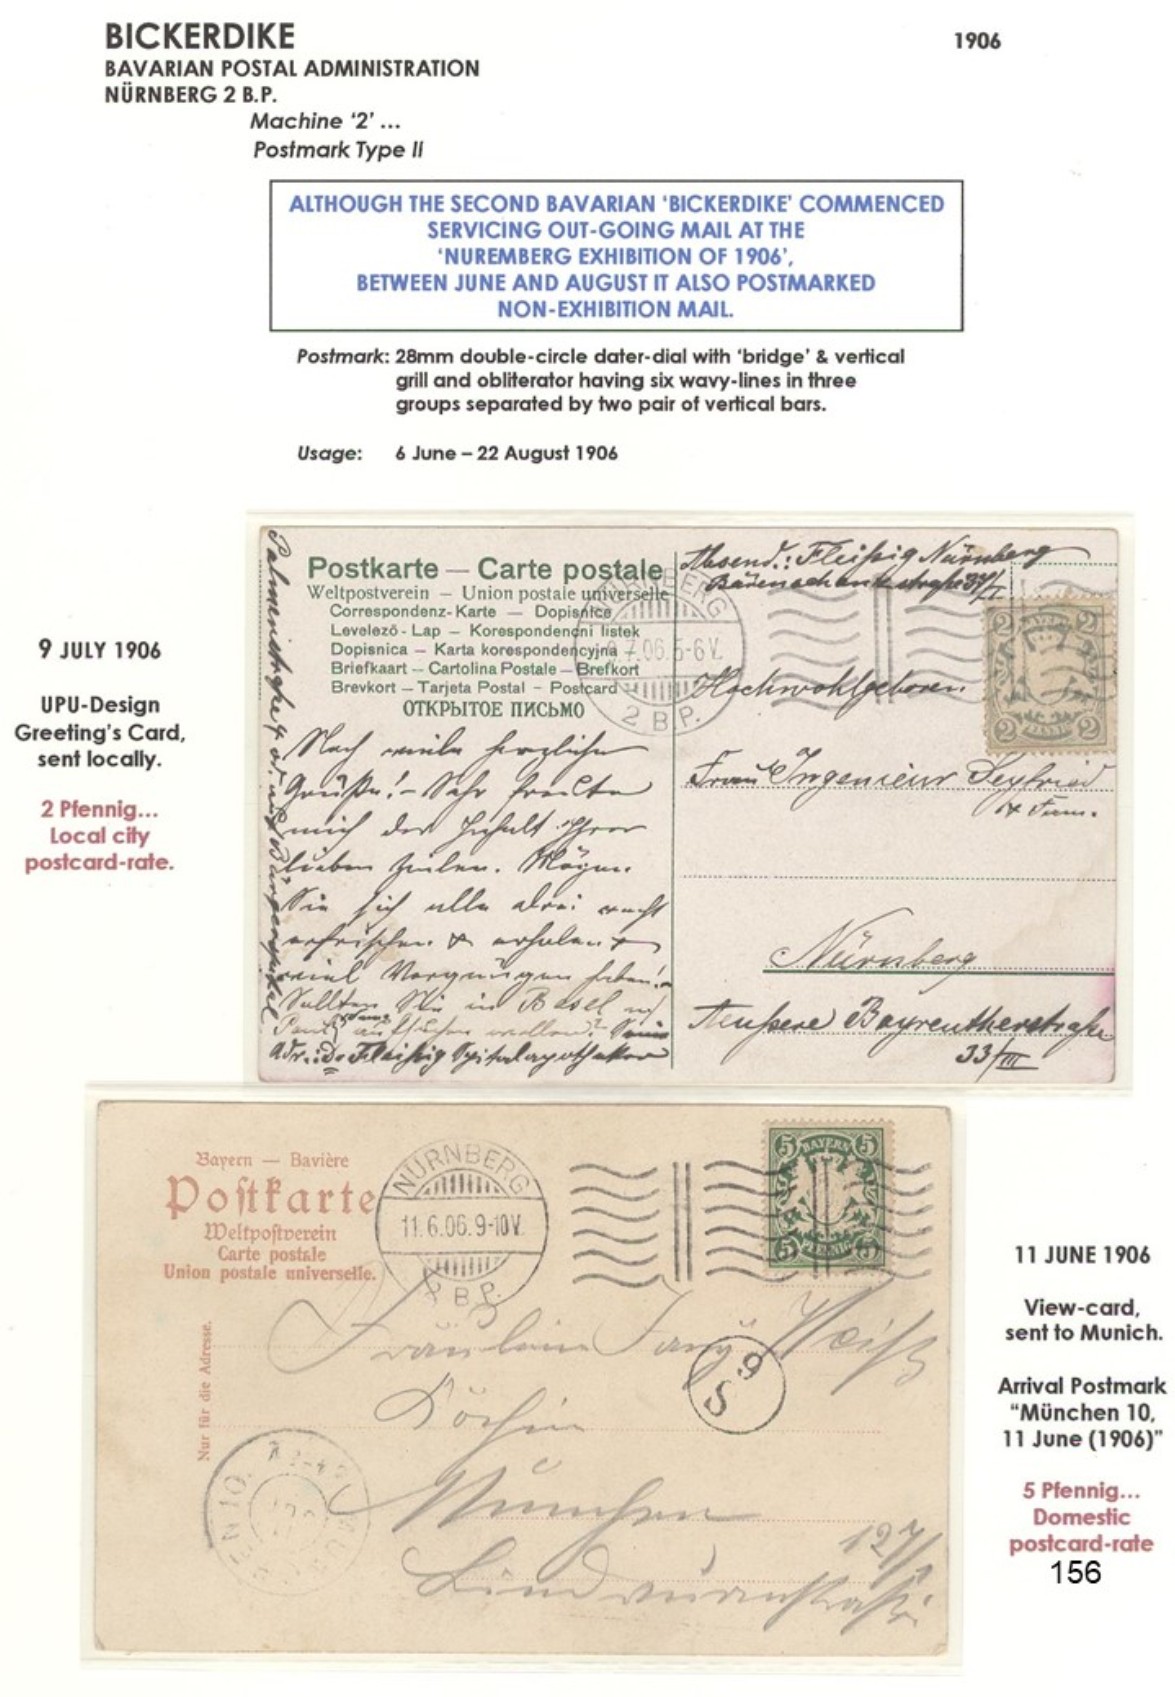 BICKERDIKE
1906
BAVARIAN POSTAL ADMINISTRATION
NÜRNBERG 2 B.P.
Machine ‘2’ ...
Postmark Type II
ALTHOUGH THE SECOND BAVARIAN ‘BICKERDIKE’ COMMENCED
SERVICING OUT-GOING MAIL AT THE
‘NUREMBERG EXHIBITION OF 1906’,
BETWEEN JUNE AND AUGUST IT ALSO POSTMARKED
NON-EXHIBITION MAIL.
Postmark: 28mm double-circle dater-dial with ‘bridge’ & vertical
grill and obliterator having six wavy-lines in three
groups separated by two pair of vertical bars.
Usage: 6 June – 22 August 1906
9 JULY 1906
UPU-Design
Greeting's Card,
sent locally.
2 Pfennig...
Local city
postcard-rate.
Postkarte — Carte postale
Weltpostverein — Union postale universelle
Correspondenz-Karte — Dopisnice
Levelező-Lap — Korespondencni listek
Dopisnica — Karta korespondencyjna
Briefkaart — Cartolina Postale — Brefkort
Brevkort — Tarjeta Postal — Postcard
ОТКРЫТОЕ ПИСЬМО
NÜRNBERG
7.06.5-6V.
2 B.P.
2 2
2 2
Absend.: Fleißig Nürnberg
37/I
Hochwohlgeboren
Frau Ingenieur Seyfried
Nürnberg
Aeußere Bayreutherstraße
33/III
Noch viele herzliche
Grüße! Sehr freute
mich der Inhalt Ihrer
lieben Zeilen. Mögen
Sie sich alle drei recht
erfrischen & erholen &
viel Vergnügen haben!
Sollten Sie in Basel
Adr.: Fleißig Spitalapotheker
Bayern — Bavière
Postkarte
Weltpostverein
Carte postale
Union postale universelle.
Nur für die Adresse.
NÜRNBERG
11.6.06.9-10V.
2 B.P.
5 BAYERN 5
5 PFENNIG 5
Fräulein Fany Weiß
Köchin
München
Lindwurmstraße
127/I
11 JUNE 1906
View-card,
sent to Munich.
Arrival Postmark
“München 10,
11 June (1906)”
5 Pfennig...
Domestic
postcard-rate
156